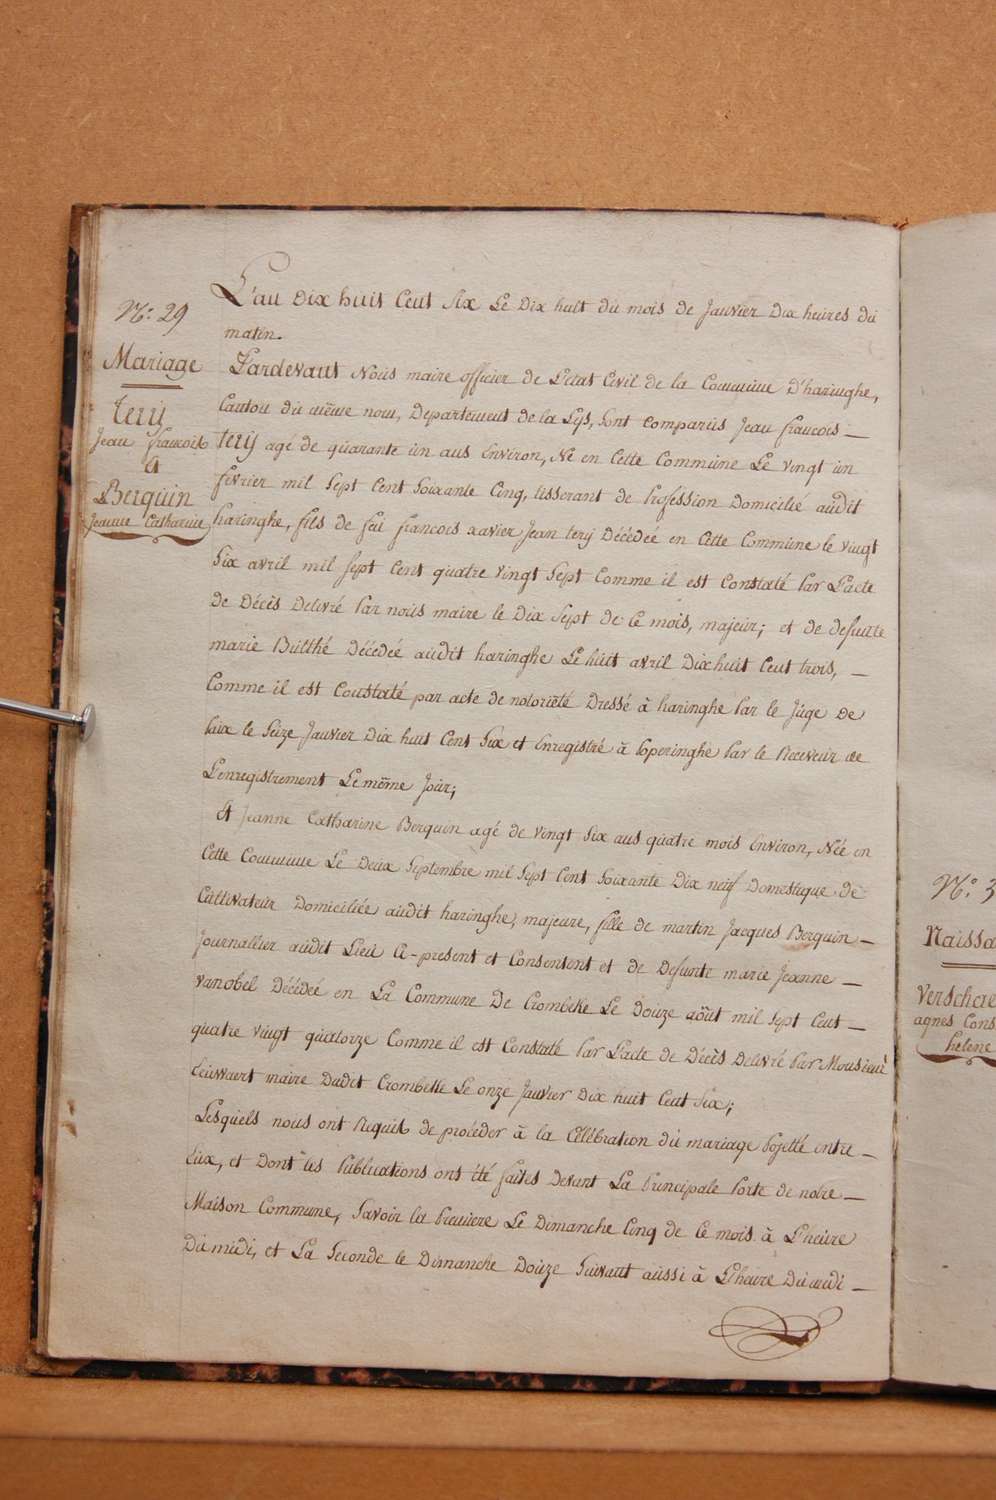 N.º 29
Mariage
Terÿ
Jean francois
et
Berquin
Jeanne Catharine
L'an dix huit Cent Six Le Dix huit du mois de Janvier Dix heures du
matin.
Pardevant Nous maire officier de L'etat Civil de la Commune D'haringhe,
Canton du même nom, Departement de la Lÿs, sont comparus Jean francois —
terÿ agé de quarante un ans Environ, Né en Cette Commune Le Vingt un
fevrier mil Sept Cent Soixante Cinq, tisserant de Profession Domicilié audit
haringhe, fils de feu francois xavier Jean terÿ Décédée en Cette Commune le vingt
Six avril mil Sept Cent quatre vingt Sept Comme il est Constaté par L'acte
de Décès Delivré par nous maire le Dix Sept de Ce mois, majeur; et de defunte
marie Bultthé Décedeé audit haringhe Le huit avril Dix huit Cent trois, —
Comme il est Constaté par acte de notoriété Dressé à haringhe par le Juge de
paix le Seize Janvier Dix huit Cent Six et Enregistré à Poperinghe par le Receveur de
L'enregistrement Le même Jour;
et Jeanne Catharine Berquin agé de Vingt Six ans quatre mois Environ, Née en
Cette Commune Le Deux Septembre mil Sept Cent Soixante Dix neuf Domestique de
Cultivateur Domiciliée audit haringhe, majeure, fille de martin Jacques Berquin —
Journallier audit Lieu A-present et Consentent et de Defunte marie Jeanne —
vanobel Décédeé en La Commune De Crombeke Le Douze aôut mil Sept Cent —
quatre vingt quatorze Comme il est Constaté par L'acte de Décès Delivré par Monsieur
Leuwaert maire Dudit Crombette Le onze Janvier Dix huit Cent Six;
Lesquels nous ont Requis de procéder à la Célébration du mariage Projetté entre —
Eux, et Dont les Publications ont été faites Devant La Principale Porte de notre —
Maison Commune, Savoir la Premiere Le Dimanche Cinq de Ce mois à L'heure
Du midi, et La Seconde le Dimanche Douze Suivant aussi à L'heure Du midi —
N.º 3
Naissa
Verschae
agnes Cons
helene